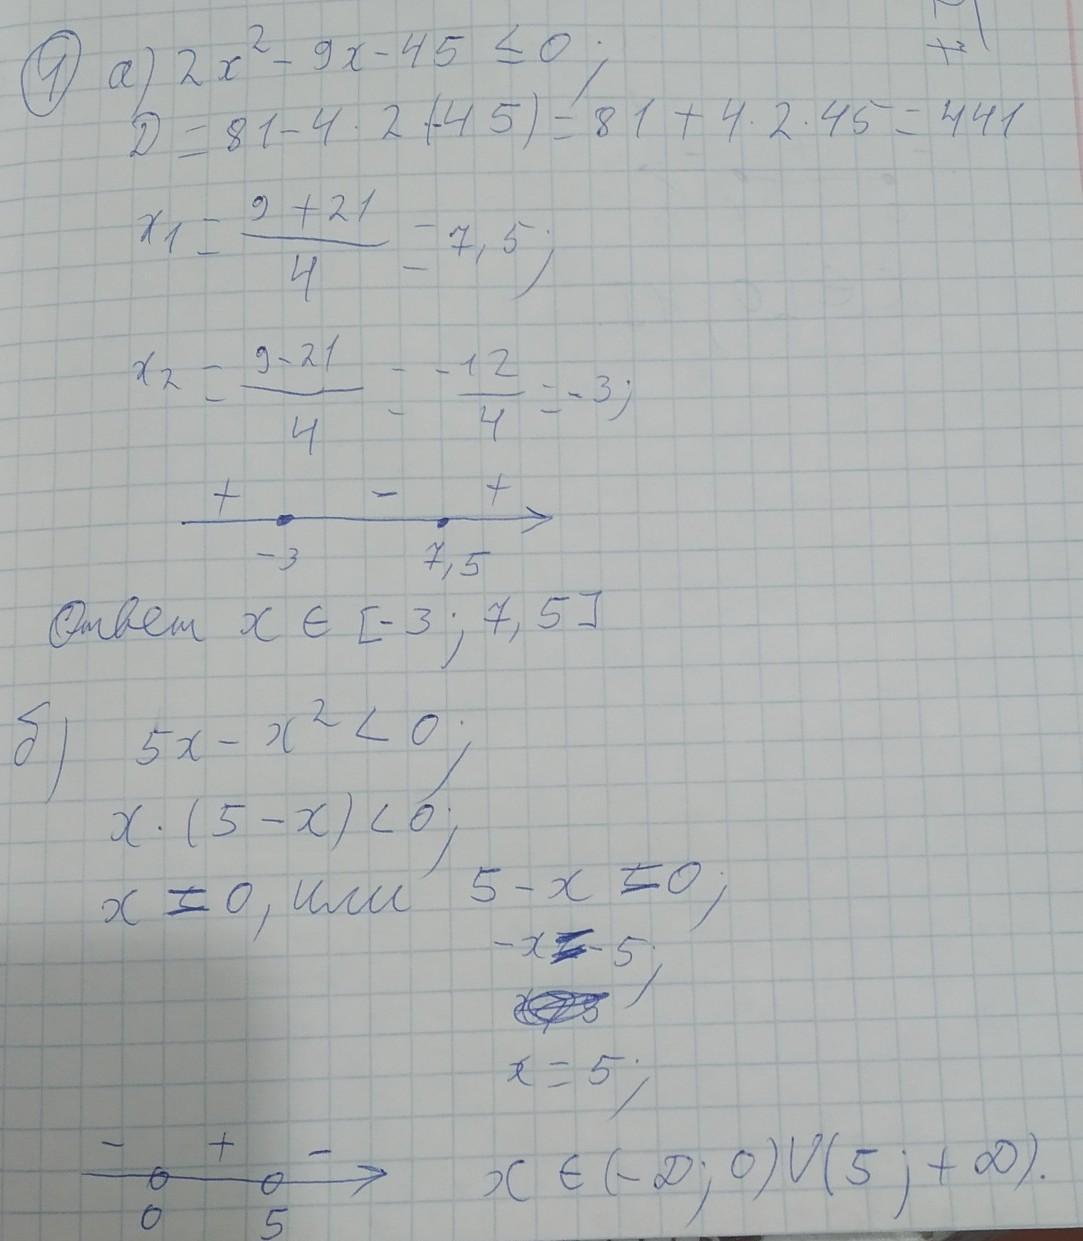 ① а) 2x² - 9x - 45 ≤ 0;
D = 81 - 4 · 2 (-45) = 81 + 4 · 2 · 45 = 441
x₁ = (9 + 21)/4 = 7,5;
x₂ = (9 - 21)/4 = -12/4 = -3;
+ - +
-3 7,5
Ответ x ∈ [-3; 7,5]
б) 5x - x² < 0;
x · (5 - x) < 0;
x = 0, или 5 - x = 0;
-x = -5;
x = 5;
- + -
0 5
x ∈ (-∞; 0) ∪ (5; +∞).